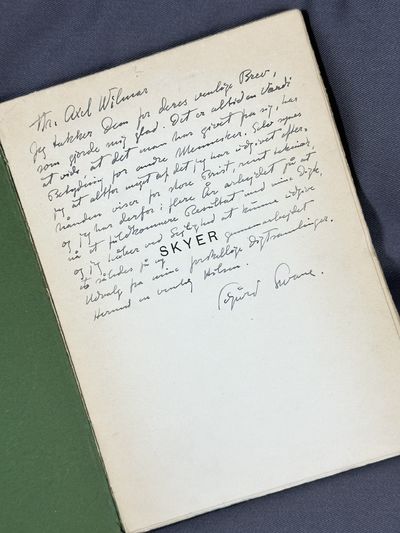 Hr. Axel Wilmar
Jeg takker Dem for deres venlige Brev,
som gjorde mig glad. Det er altid en Værdi
at vide, at det man har givet fra sig, har
Betydning for andre Mennesker. Selv synes
jeg at altfor meget af det, jeg har udgivet efter-
hånden viser for store Brist, rent teknisk,
og jeg har derfor i flere År arbejdet på at
nå et fuldkomnere Resultat med mine Digte,
og jeg håber ved Lejlighed at kunne udgive
et således på ny gennemarbejdet
SKYER
Udvalg fra mine forskellige Digtsamlinger.
Hermed en venlig Hilsen.
Sigurd Swane.